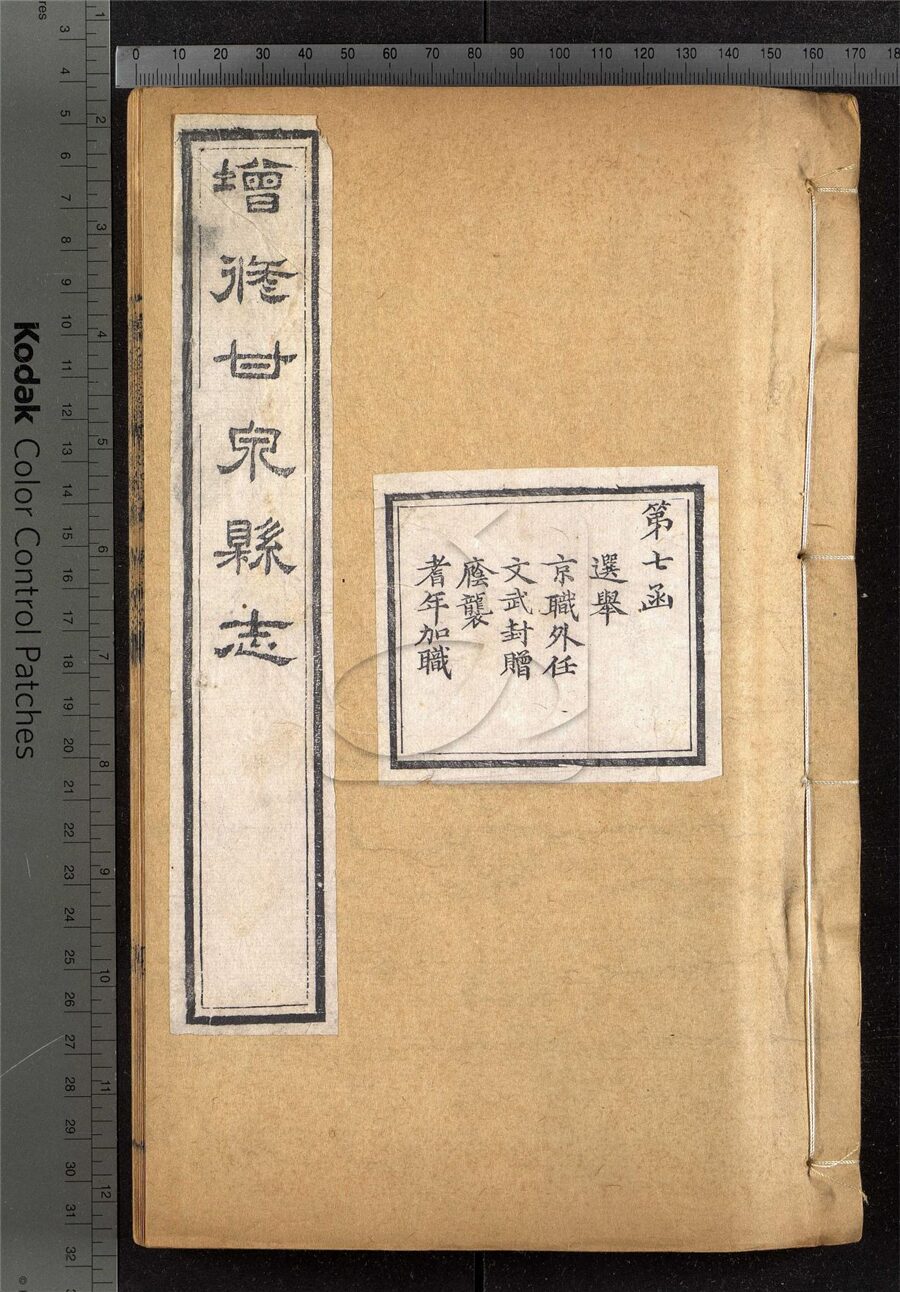 增修甘泉縣志
第七函
選舉
京職外任
文武封贈
廕襲
耆年加職
Kodak Color Control Patches
0 10 20 30 40 50 60 70 80 90 100 110 120 130 140 150 160 170 18
3 4 5 6 7 8 9 10 11 12 13 14 15 16 17 18 19 20 21 22 23 24 25 26 27 28 29 30 31 32
1 2 3 4 5 6 7 8 9 10 11 12